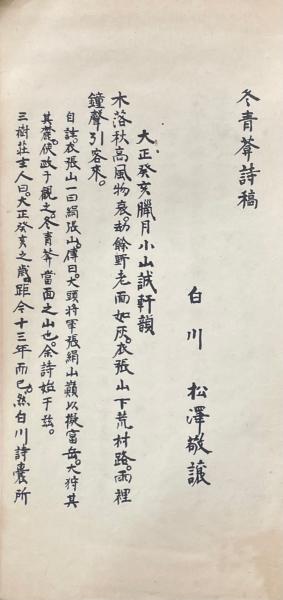 冬青莾詩稿
白川 松澤敬讓
大正癸亥臘月小山誠軒韻
木落秋高風物衰。劫餘野老面如灰。衣張山下荒村路。雨裡
鐘聲引客來。
自註衣張山一曰絹張山。傳曰。大頭將軍張絹山巓以擬富岳。大狩其
其麓。使政子觀之。冬青莾當面之山也。余詩始于玆。
三樹莊主人曰。大正癸亥之歲。距今十三年而已。然白川詩囊所